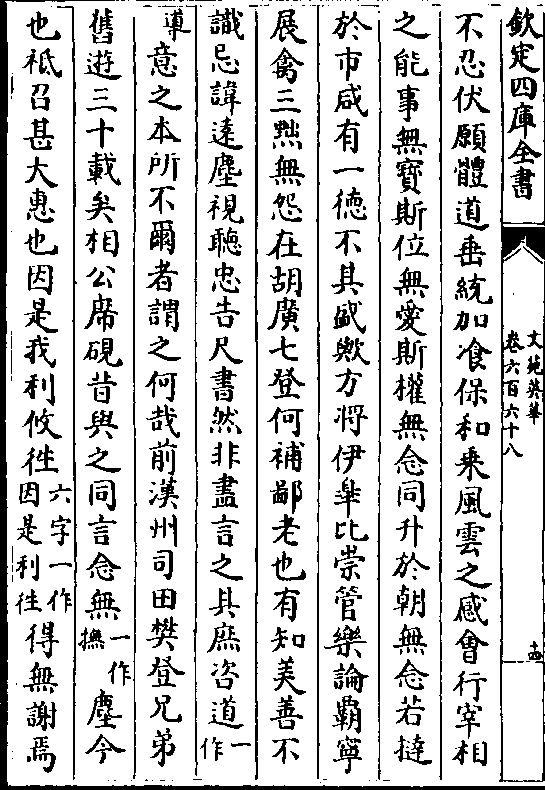 欽定四庫全書
文苑英華
卷六百六十八
十四
不忍伏願體道垂統加飡保和乗風雲之感㑹行宰相
之能事無寳斯位無愛斯權無念同升於朝無念若撻
於市咸有一徳不其盛歟方將伊臯比崇管樂論覇寧
展禽三黜無怨在胡廣七登何補鄙老也有知美善不
識忌諱逺塵視聽忠告尺書然非盡言之具庶咨道一作
導意之本所不爾者謂之何哉前漢州司田樊登兄弟
舊遊三十載矣相公席硯昔與之同言念無一作撫塵今
也祗召甚大惠也因是我利攸徃六字一作因是利徃得無謝焉